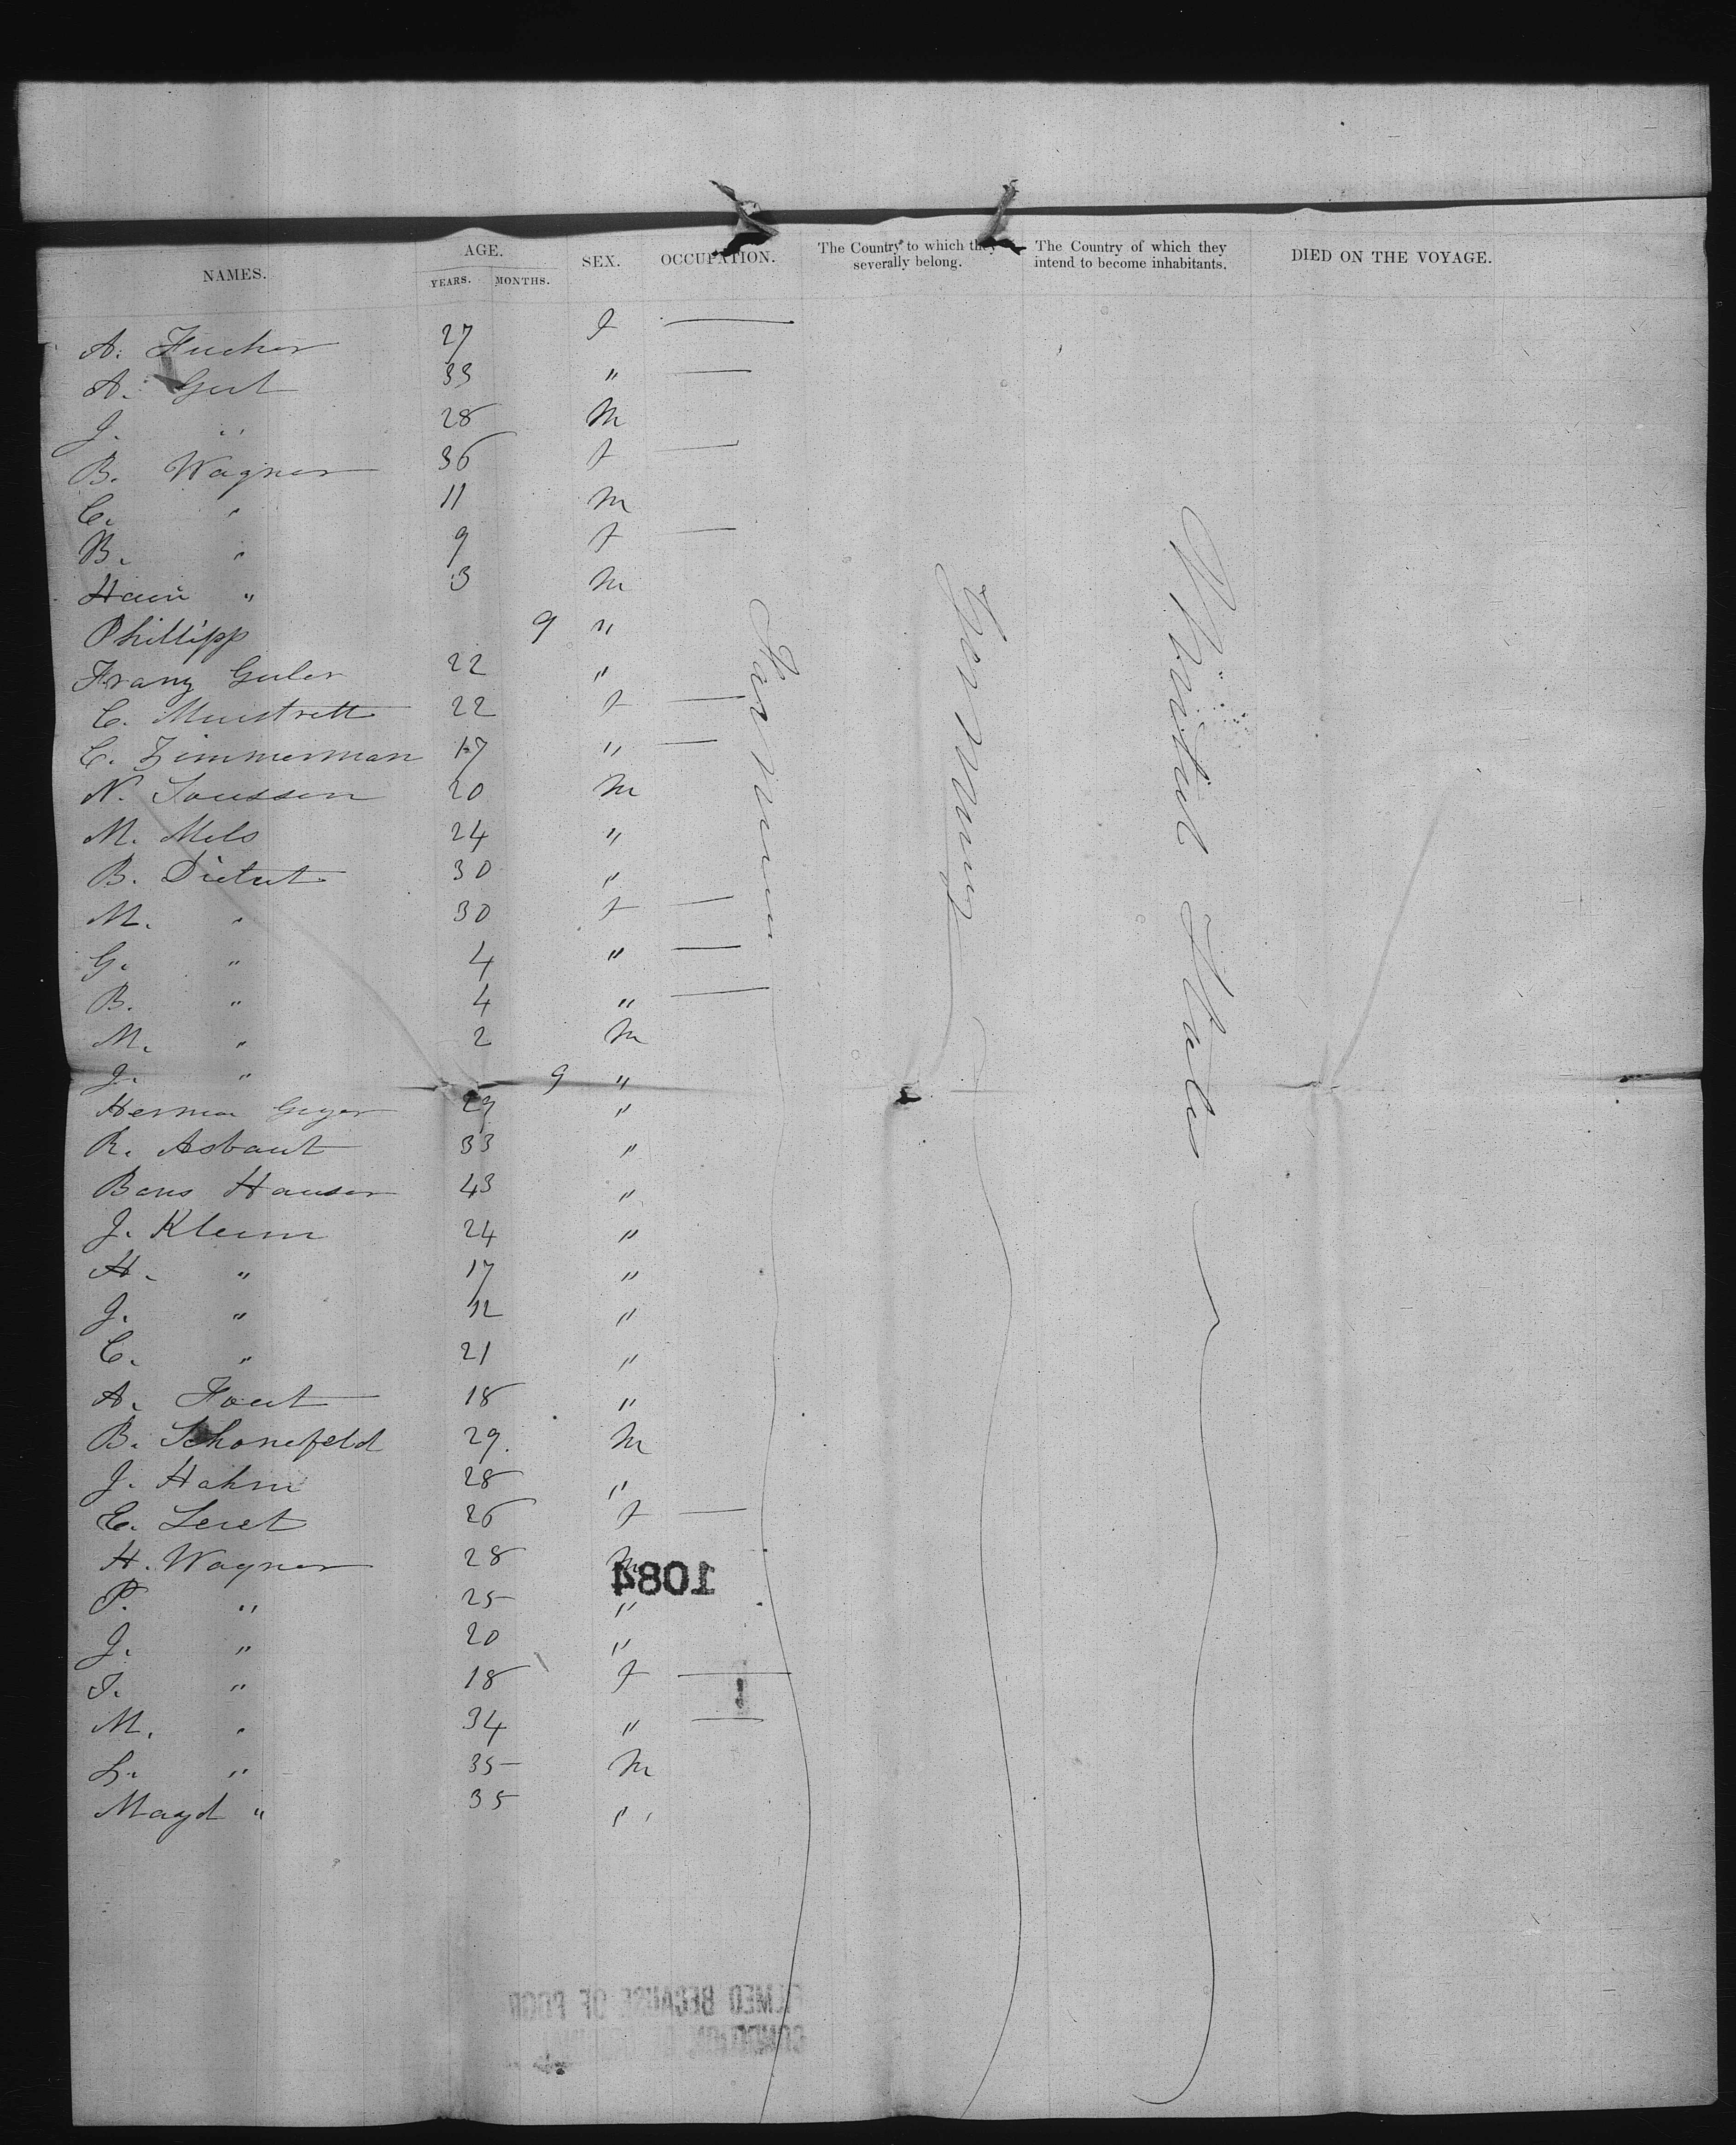 NAMES. AGE. YEARS. MONTHS. SEX. OCCUPATION. The Country to which they severally belong. The Country of which they intend to become inhabitants. DIED ON THE VOYAGE.
A. Fucher 27 f —
A. Gut 33 " —
J. " 28 M
B. Wagner 36 f —
C. " 11 M
B. " 9 f —
" 3 M
Phillipp 9 "
Franz Guler 22 "
C. 22 f —
C. Zimmerman 17 " —
N. Soussen 20 M
M. Mels 24 "
B. Dietut 30 "
M. " 30 f —
G. " 4 " —
B. " 4 " —
M. " 2 M
J. " 9 "
Herman Geyer "
R. Asbaut 33 "
Hauser 43 "
J. Kleim 24 "
H. " 17 "
J. " 12 "
C. " 21 "
A. Faut 18 "
B. Schonefeld 29. M
J. Hahn 28 "
E. Leret 26 f —
H. Wagner 28 M
P. " 25 "
J. " 20 "
" 18 f —
M. " 34 " —
" 35 M
Magd " 35 "
Germany
United States
1084